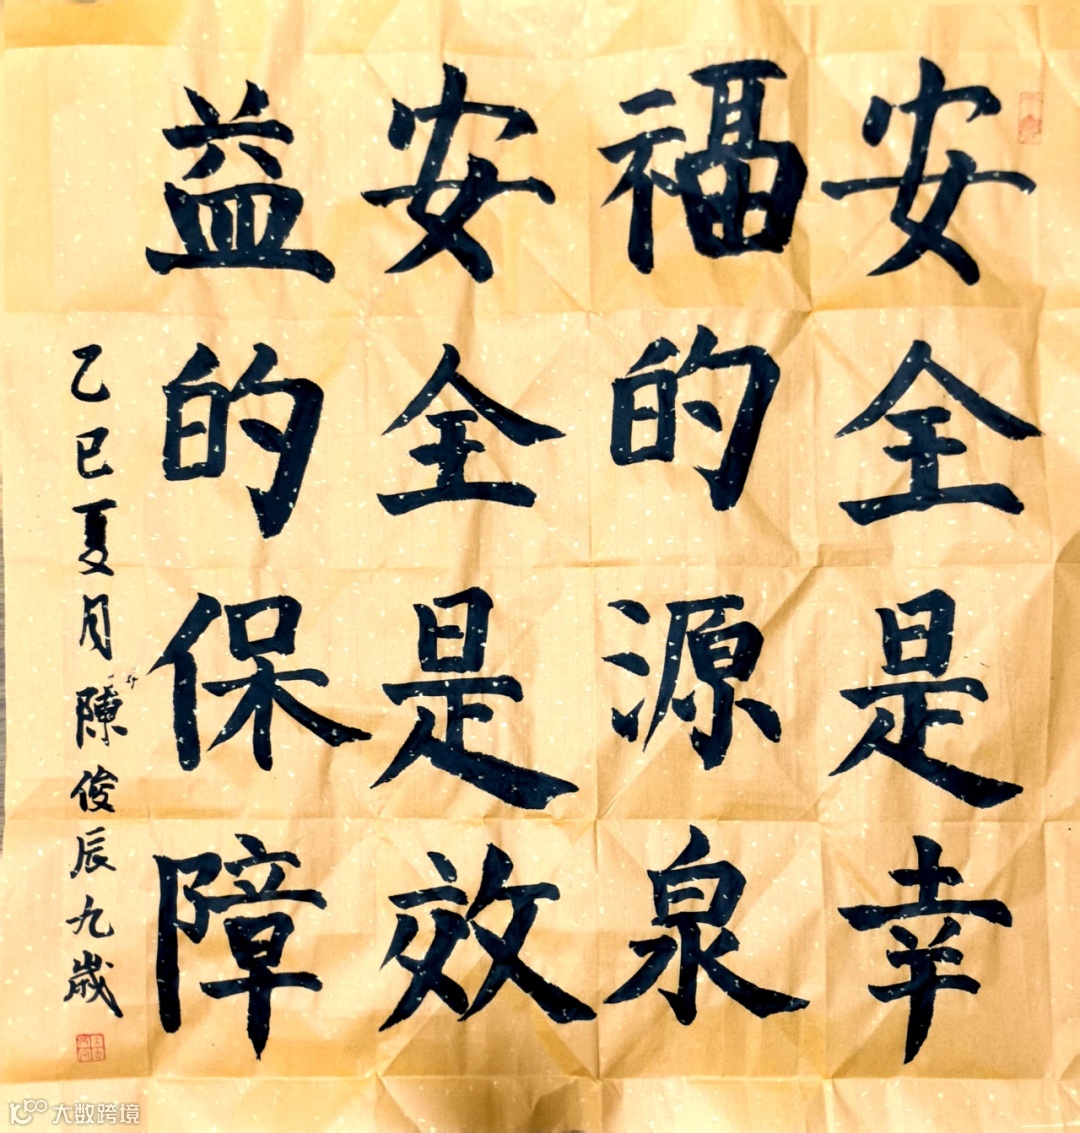 安全是幸
福的源泉
安全是效
益的保障
乙巳夏月陳俊辰九歲
大数跨境